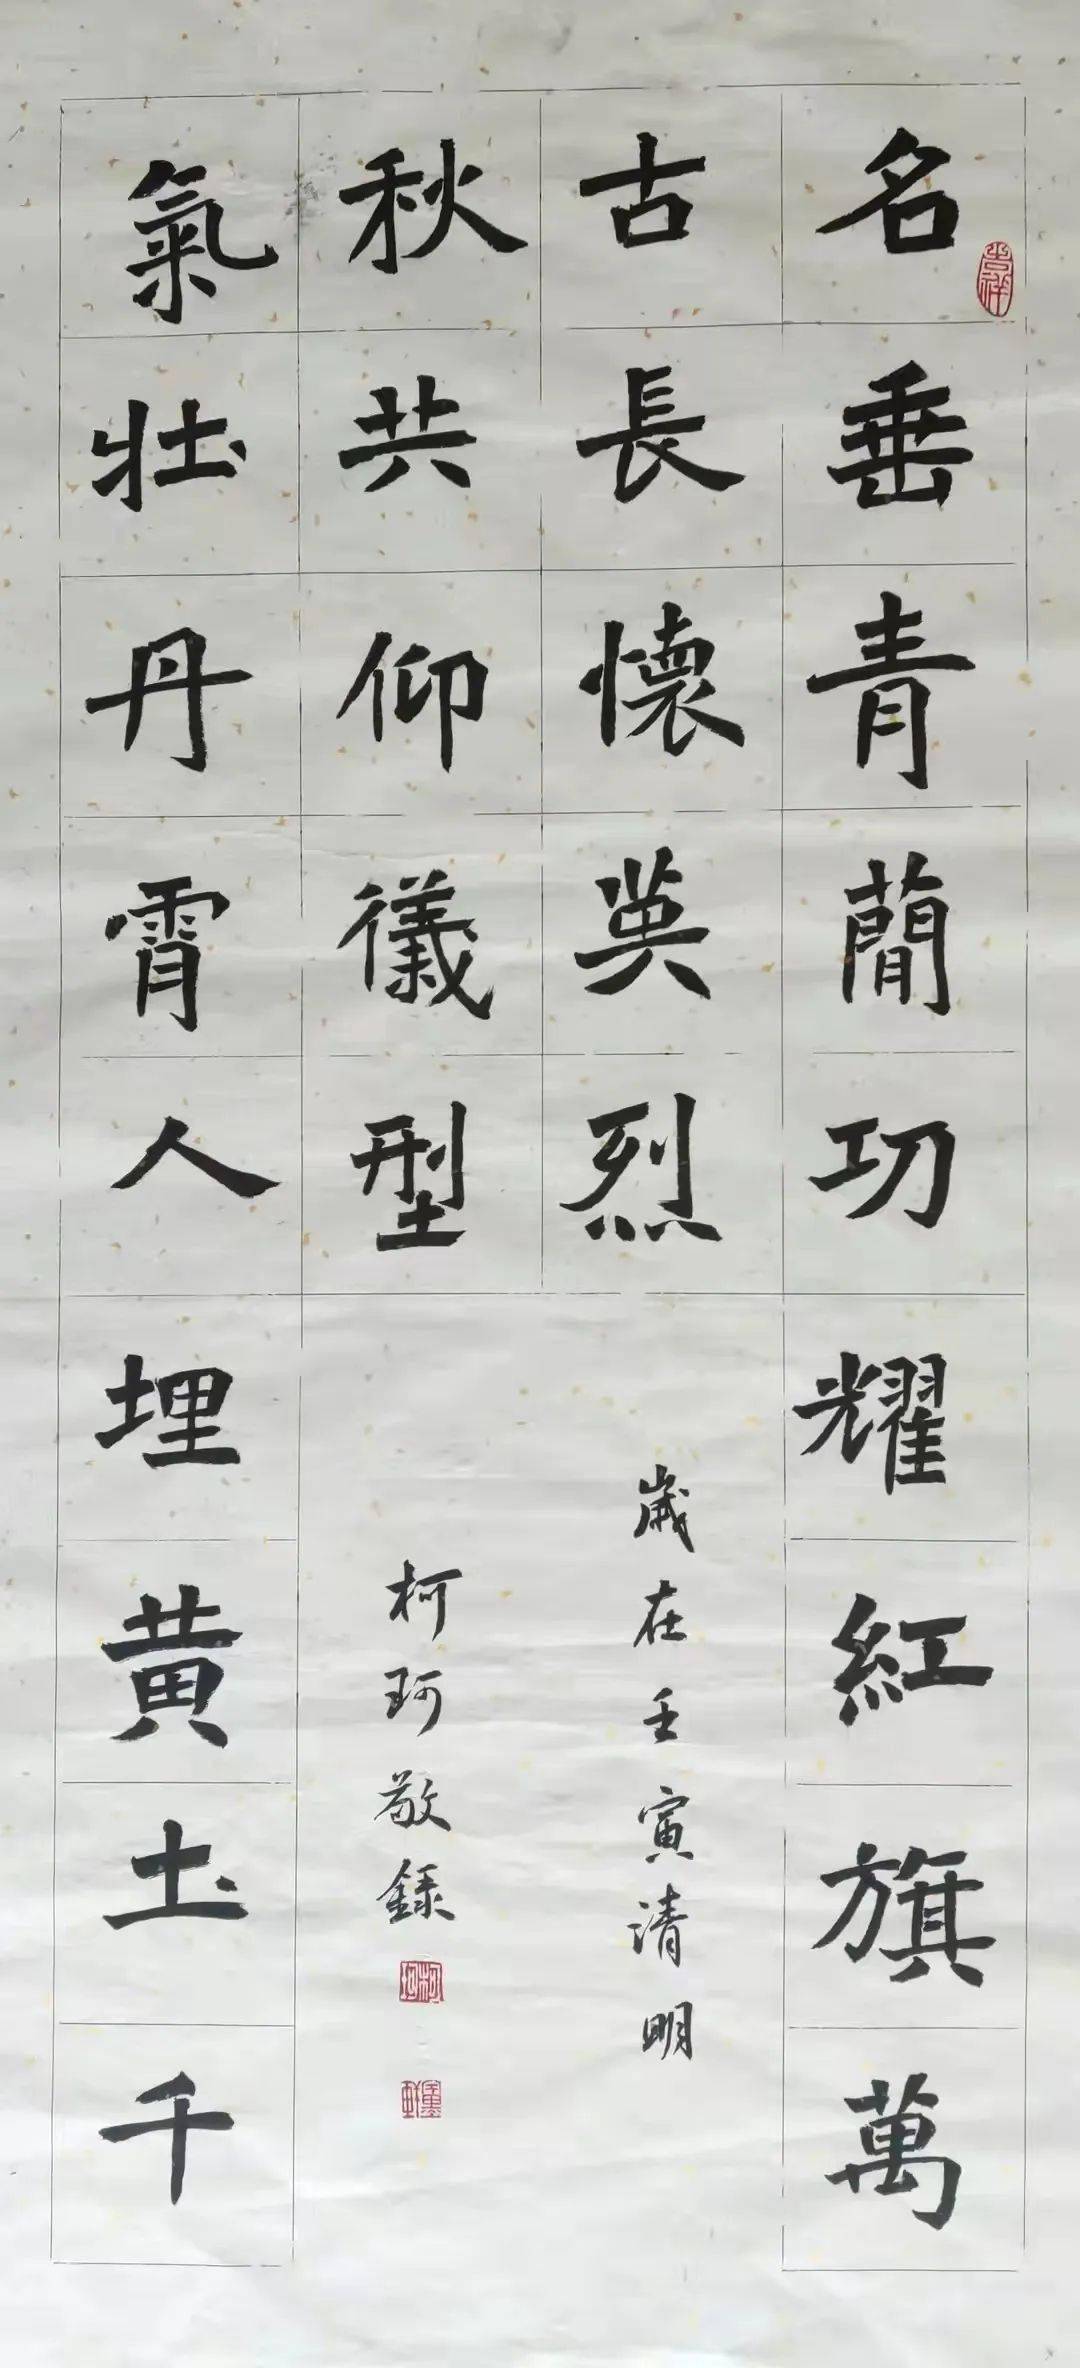 名垂青簡功耀紅旗萬
古長懷英烈
氣壯丹霄人埋黄土千
秋共仰儀型
歲在壬寅清明
柯珂敬錄
吉祥
柯珂